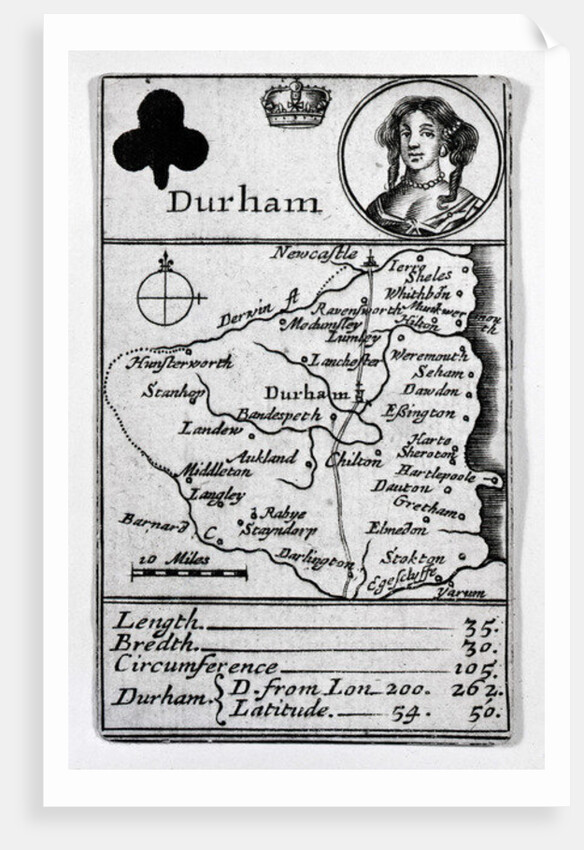 Durham
Newcaſtle
Sheles
Whithbon
Derwin ft
Ravensworth
Hilton
Lumley
Hunsterworth
Lanchester
Weremouth
Seham
Stanhop
Durham
Dawdon
Bandespeth
Eßington
Landew
Harte
Sheroton
Aukland
Chilton
Hartlepoole
Middleton
Dauton
Langley
Gretham
Rabye
Barnard C.
Stayndorp
Elmedon
Darlington
Stokton
10 Miles
Egeſclyffe
Yarum
Length. 35.
Bredth. 30.
Circumference 105.
Durham. D. from Lon 200. 262.
Latitude. 54. 50.